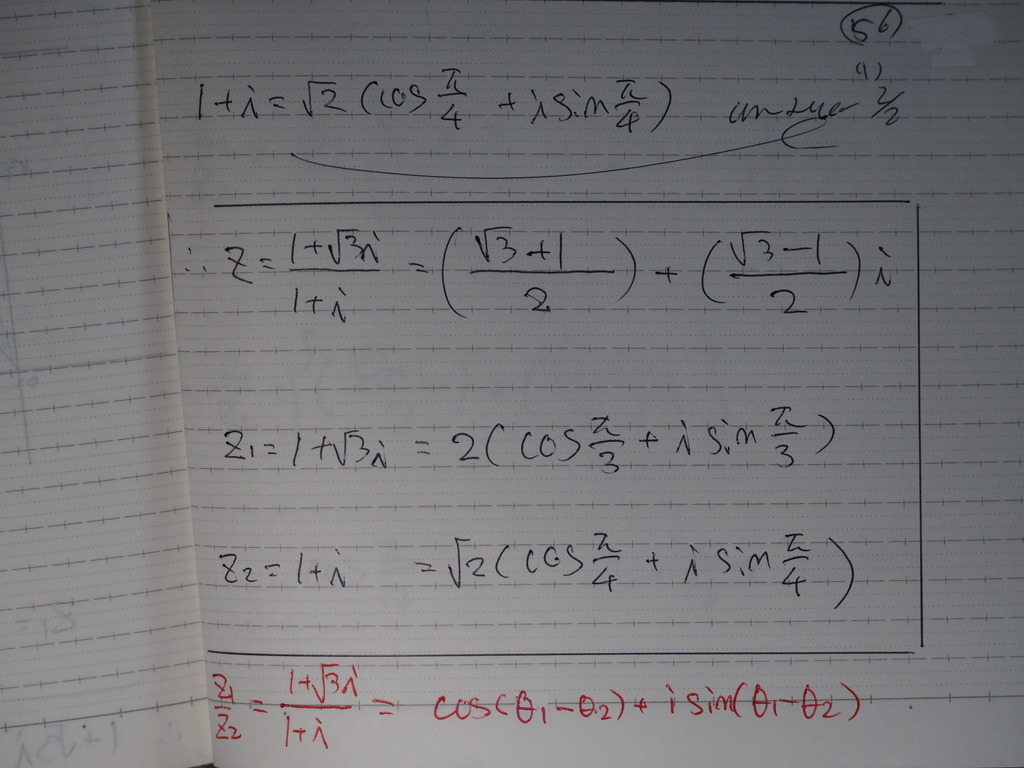 56
9)
1+i = √2 (cos π/4 + i sin π/4) answer 2/2
∴ Z = (1+√3i)/(1+i) = ((√3+1)/2) + ((√3−1)/2) i
Z1 = 1+√3i = 2(cos π/3 + i sin π/3)
Z2 = 1+i = √2(cos π/4 + i sin π/4)
Z1/Z2 = (1+√3i)/(1+i) = cos(θ1−θ2) + i sin(θ1−θ2)